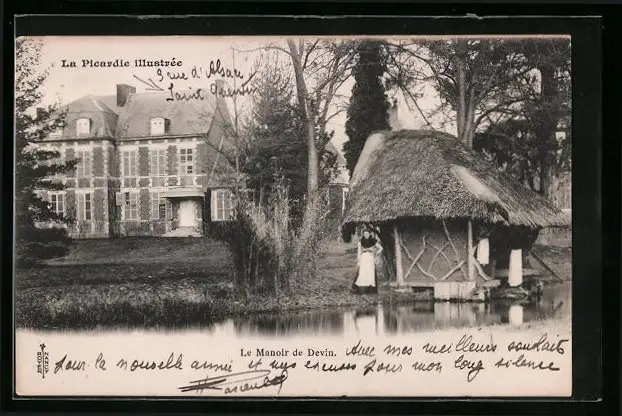 La Picardie illustrée
3 rue d'Alsace
Saint Quentin
Le Manoir de Devin.
Avec mes meilleurs souhaits
Pour la nouvelle année et mes excuses pour mon long silence